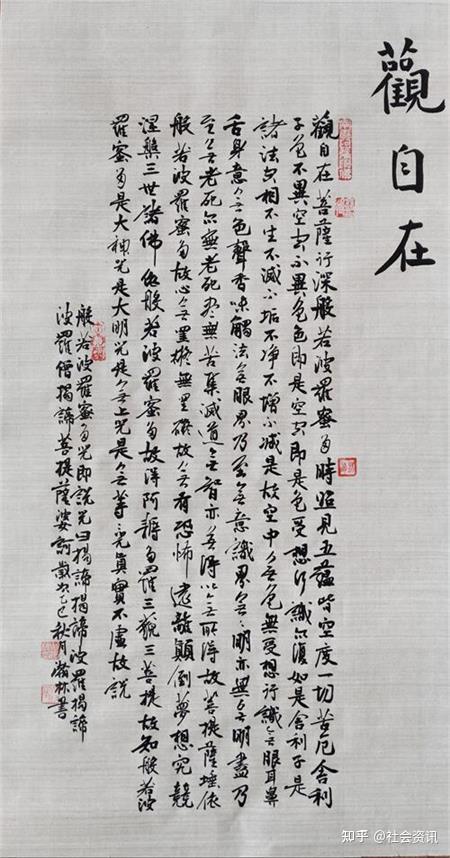 觀自在
觀自在菩薩行深般若波羅蜜多時照見五蘊皆空度一切苦厄舍利
子色不異空空不異色色即是空空即是色受想行識亦復如是舍利子是
諸法空相不生不滅不垢不净不增不减是故空中無色無受想行識無眼耳鼻
舌身意無色聲香味觸法無眼界乃至無意識界無無明亦無無明盡乃
至無老死亦無老死盡無苦集滅道無智亦無得以無所得故菩提薩埵依
般若波羅蜜多故心無罣礙無罣礙故無有恐怖遠離顛倒夢想究竟
涅槃三世諸佛依般若波羅蜜多故得阿耨多羅三藐三菩提故知般若波
羅蜜多是大神咒是大明咒是無上咒是無等等咒真實不虛故說
般若波羅蜜多咒即說咒曰揭諦揭諦波羅揭諦
波羅僧揭諦菩提薩婆訶 歲 巳秋月 林書
知乎 @社会资讯